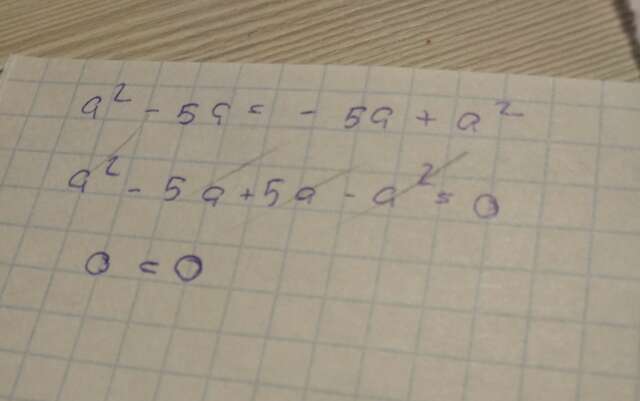 a² - 5a = - 5a + a²
a² - 5a + 5a - a² = 0
0 = 0